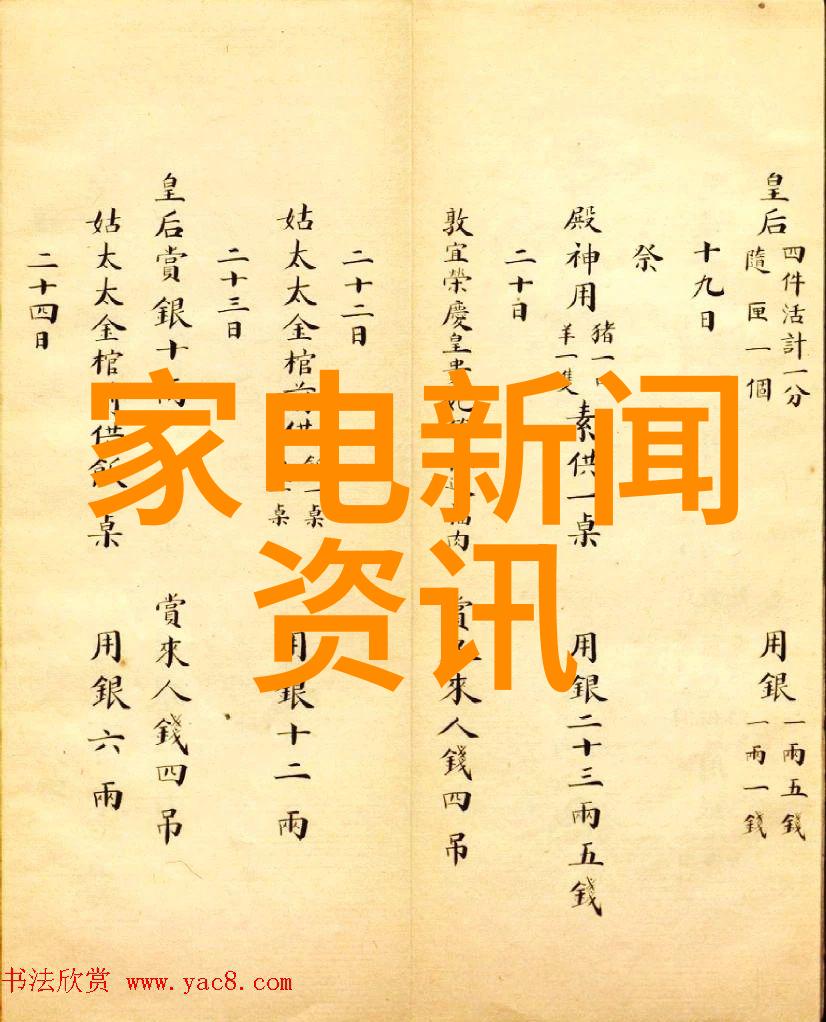 皇后 四件活計一分 隨匣一個 用銀 一兩五錢 一兩一錢
十九日
祭
殿神用 猪一口 羊一隻 素供一桌 用銀二十三兩五錢
二十日
敦宜榮慶皇貴妃 肉 賞 來人錢四吊
二十二日
姑太太金棺前供 飯一桌 桌 用銀十二兩
二十三日
皇后賞銀十兩 賞來人錢四吊
姑太太金棺前供飯 桌 用銀六兩
二十四日
家电新闻
资讯
书法欣赏 www.yac8.com